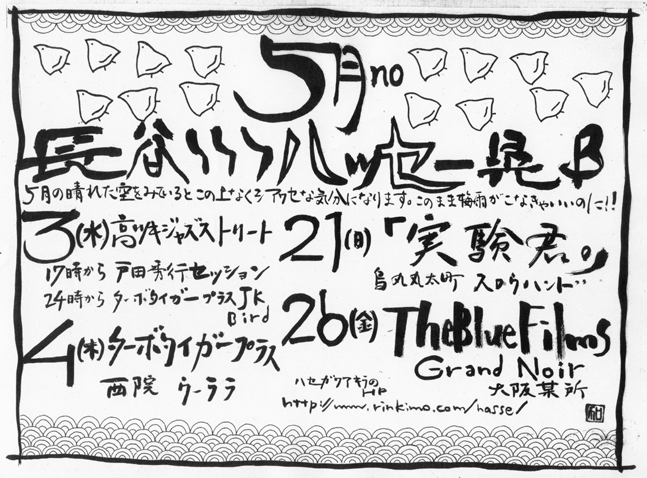 5月no
長谷川ハッセー晃B
5月の晴れた空をみているとこの上なくシアワセな気分になります。このまま梅雨がこなきゃいいのに!!
3(水)高ツキジャズストリート
17時から 戸田秀行セッション
24時から ターボタイガープラス JK
Bird
4(木)ターボタイガープラス
西院 ウーララ
21(日)「実験君。」
烏丸丸太町 スロウハンド
26(金)TheBlueFilms
Grand Noir
大阪某所
ハセガワアキラのHP
http://www.rinkimo.com/hasse/